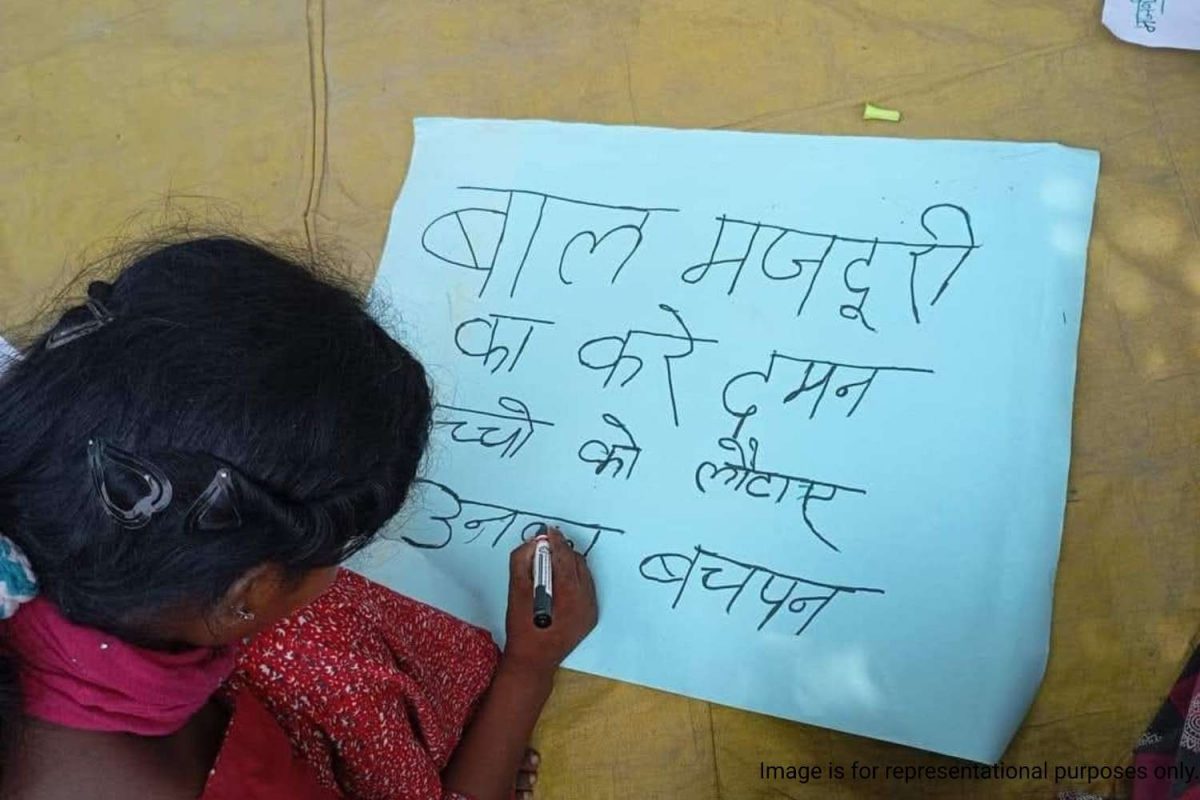 बाल मजदूरी
का करे दमन
च्चो को लौटाए
उनका बचपन
Image is for representational purposes only.